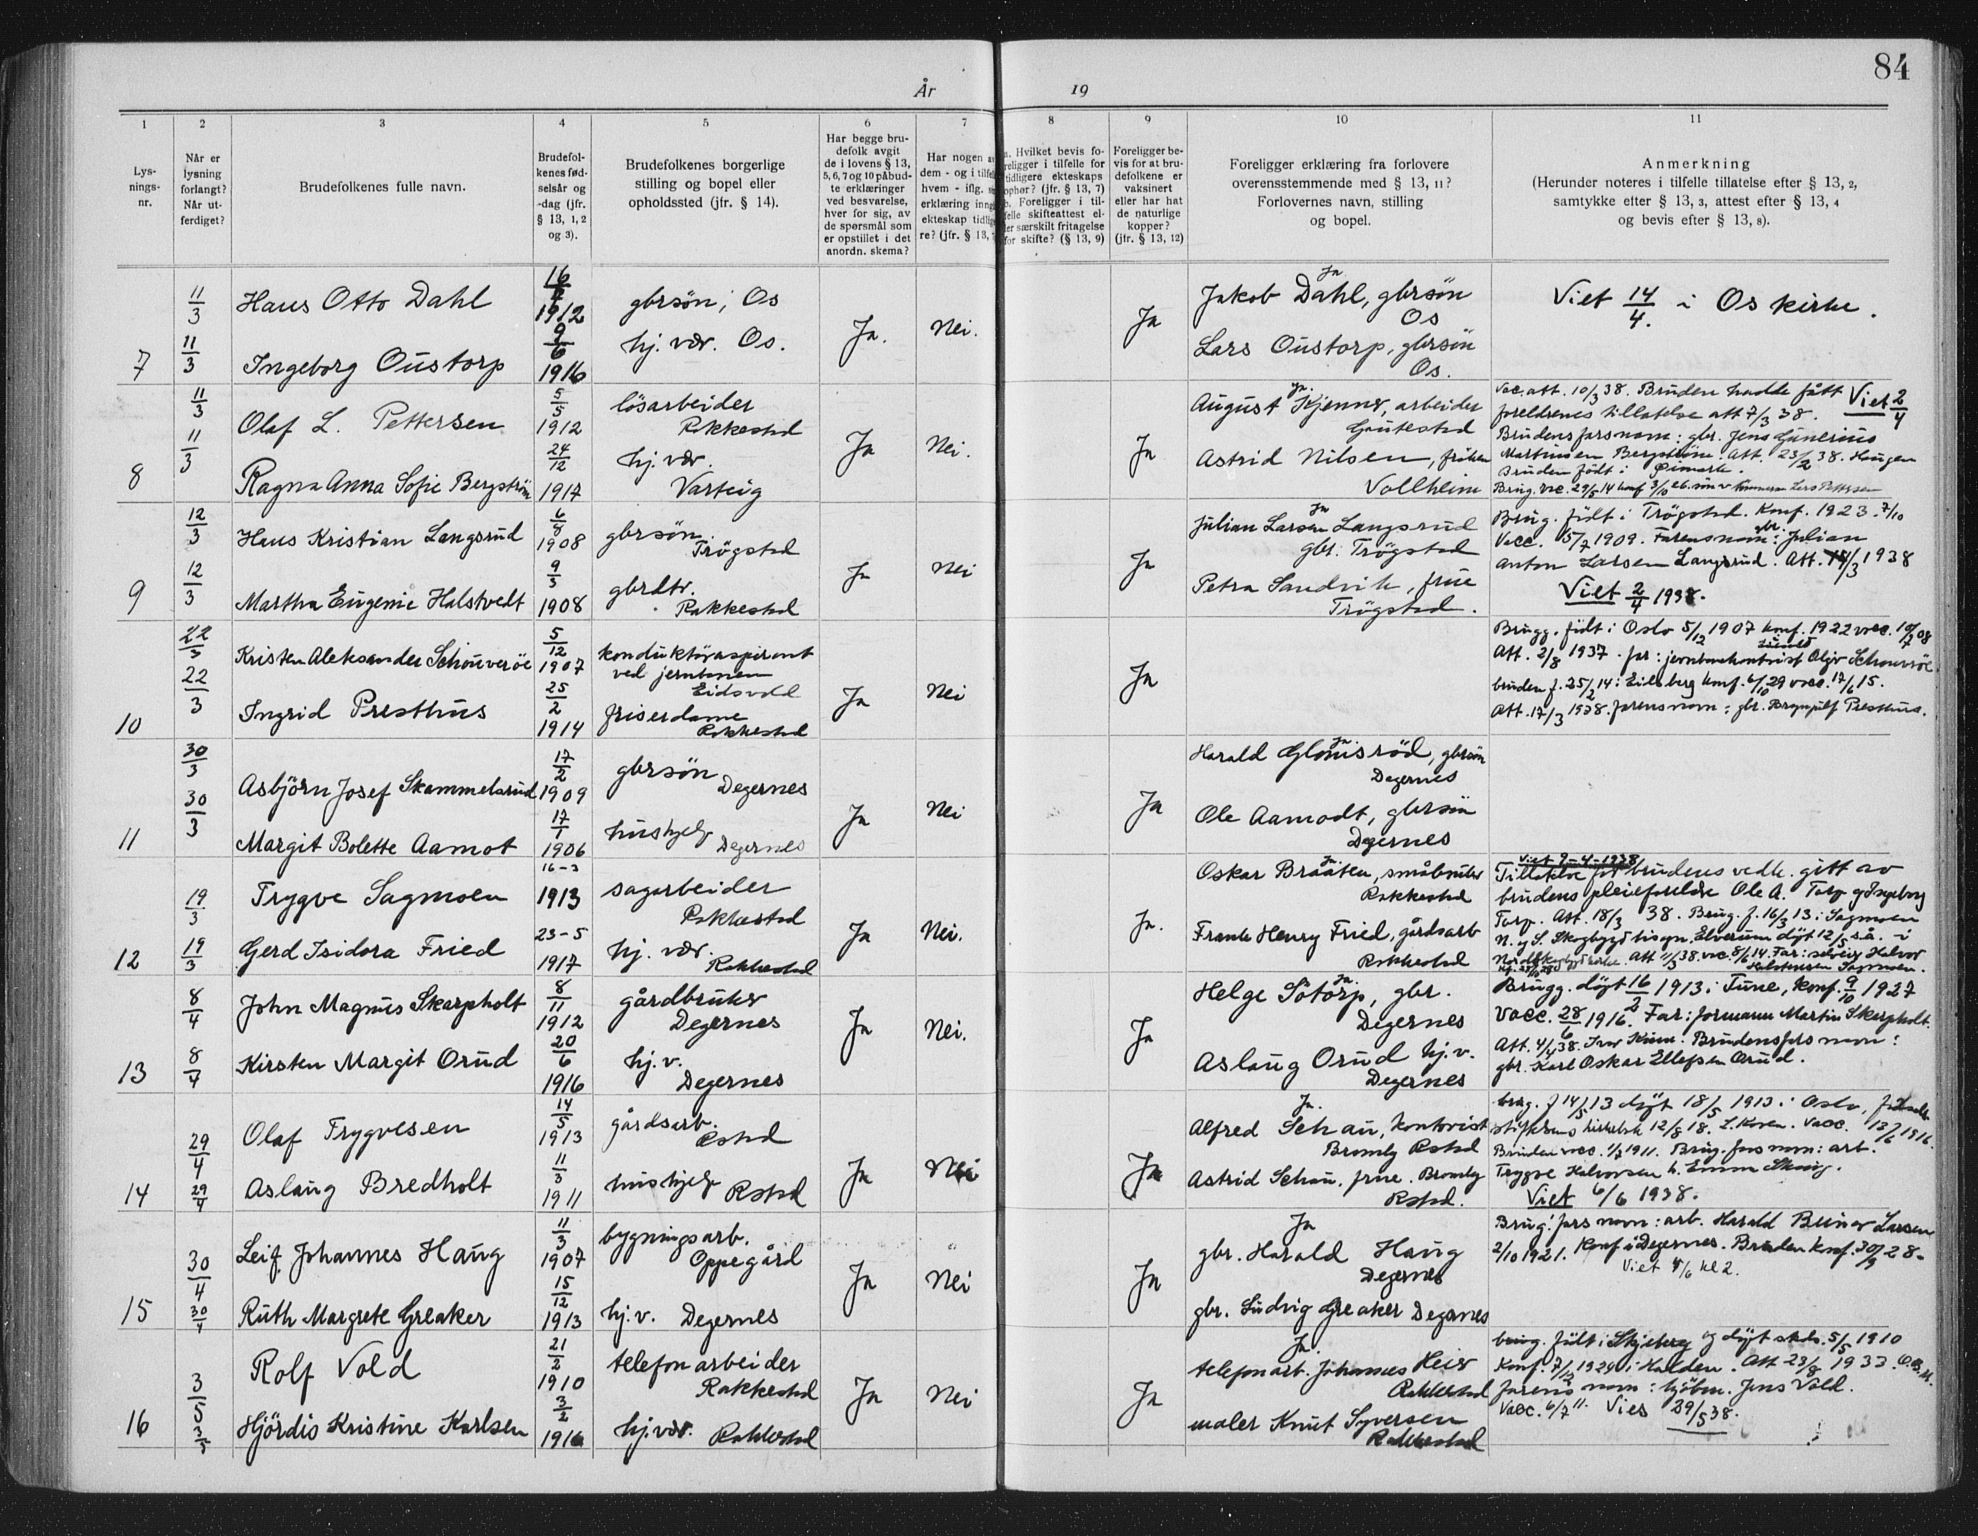 84
År 19
1 2 3 4 5 6 7 8 9 10 11
Lys-
nings-
nr.
Når er
lysning
forlangt?
Når ut-
ferdiget?
Brudefolkenes fulle navn.
Brudefol-
kenes fød-
selsår og
-dag (jfr.
§ 13, 1, 2
og 3).
Brudefolkenes borgerlige
stilling og bopel eller
opholdssted (jfr. § 14).
Har begge bru-
defolk avgit
de i lovens § 13,
5, 6, 7 og 10 påbud-
te erklæringer
ved besvarelse,
hver for sig, av
de spørsmål som
er opstillet i det
anordn. skema?
Har nogen
dem - og i
hvem - iflg.
erklæring
ekteskap
re? (jfr. § 13,
Hvilket bevis fo-
religger i tilfelle for
tidligere ekteskaps
ophør? (jfr. § 13, 7)
b. Foreligger i til-
felle skifteattest el-
ler særskilt fritagelse
for skifte? (§ 13, 9)
Foreligger be-
vis for at bru-
defolkene er
vaksinert
eller har hat
de naturlige
kopper?
(jfr. § 13, 12)
Foreligger erklæring fra forlovere
overensstemmende med § 13, 11?
Forlovernes navn, stilling
og bopel.
Anmerkning
(Herunder noteres i tilfelle tillatelse efter § 13, 2,
samtykke efter § 13, 3, attest efter § 13, 4
og bevis efter § 13, 8).
7
11/3 Hans Otto Dahl 1912 gbrsøn, Os
11/3 Ingeborg Oustorp 9/6 1916 hj. vær. Os.
Ja. Nei. Ja
Ja
Jakob Dahl, gbrsøn
Os
Lars Oustorp, gbrsøn
Os.
Viet 14/4. i Os kirke.
8
11/3 Olaf L. Pettersen 5/5 1912 løsarbeider
Rakkestad
11/3 Ragna Anna Sofie Bergström 24/12 1917 hj. vær.
Varteig
Ja Nei. Ja
Ja.
August Kjenner, arbeider
Gautestad
Astrid Nilsen, frøken
Vollheim
Vac. att. 10/3 38. Bruden hadde fått Viet 2/4
foreldrenes tillatelse att 7/3 38.
Brudens farsnavn: gbr. Jens Gunerius
Martinsen Bergstrøm. Att. 23/2 38. Haugen
Bruden født i Øimark.
Brug. vac. 29/5 14 konf 3/10 26. søn av Lars Pettersen
9
12/3 Hans Kristian Langsrud 6/8 1908 gbrsøn.
Trøgstad
12/3 Martha Eugenie Halstvedt 9/3 1908 gbrdtr.
Rakkestad
Ja Nei Ja
Ja
Julian Larsen Langsrud
gbr. Trøgstad
Petra Sandvik, frue
Trøgstad.
Brug. født i Trøgstad. Konf. 1923. 7/10
Vacc. 5/7 1909. Farens navn: gbr. Julian
Anton Larsen Langsrud. Att. 14/3 1938
Viet 2/4 1938.
10
22/3 Kristen Aleksander Schouverøe 5/12 1907 konduktøraspirant
ved jernbanen
Eidsvold
22/3 Ingrid Presthus 25/2 1914 friserdame
Rakkestad
Ja Nei Ja
Brugg. født i Oslo 5/12 1907 konf. 1922 vacc. 10/7 08
Att. 2/8 1937. far: jernbanekontrist Schouverøe.
bruden f. 25/2 14 i Eidsberg konf. 6/10 29 vacc. 17/6 15.
Att. 17/3 1938. farens navn: gbr. Brynjulf Presthus.
11
30/3 Asbjörn Josef Skammelsrud 17/2 1909 gbrsøn
Degernes
30/3 Margit Bolette Aamot 17/1 1906 hushjelp
Degernes
Ja Nei Ja
Ja
Harald Glomsrød, gbrsøn
Degernes
Ole Aamodt, gbrsøn
Degernes
12
19/3 Trygve Sagmoen 16-3 1913 sagarbeider
Rakkestad
19/3 Gerd Isidora Fried 23-5 1917 hj. vær.
Rakkestad
Ja Nei. Ja.
Ja
Oskar Braaten, småbruker
Rakkestad
Frank Henry Fried, gårdsarb
Rakkestad
Viet 9-4-1938
Tillatelse for brudens vedk. gitt av
brudens pleieforeldre Ole A. Torp og Ingeborg
Torp. Att. 18/3 38. Brug. f. 16/3 13 i Sagmoen
N. og S. Skogbygd bisogn, Elverum døpt 12/5 s.å. i
Att 11/3 38. vac. 8/6 14. Far: Halvor
Sagmoen.
13
8/4 John Magnus Skarpholt 8/11 1912 gårdbruker
Degernes
8/4 Kirsten Margit Orud 20/6 1916 hj. v.
Degernes
Ja Nei. Ja
Ja.
Helge Søtorp, gbr.
Degernes
Aslaug Orud hj. v.
Degernes
Brugg. døpt 16/2 1913 i Tune, konf. 9/10 1927
Vacc. 28/6 1916. Far: formann Martin Skarpholt.
Att. 4/4 38. Brudens fars navn:
gbr. Karl Oskar Ellefsen Orud.
14
29/4 Olaf Trygvesen 14/5 1913 gårdsarb.
Rstad
29/4 Aslaug Bredholt 11/3 1911 hushjelp Rstad
Ja Nei Ja
Ja.
Alfred Schau, kontorist
Bromby Rstad
Astrid Schau, frue. Bromby
Rstad.
brug. f 14/5 13 døpt 18/5 1913 i Oslo,
stiftelsens kirkebok 12/8 18. Vacc. 13/6 1916.
Bruden vacc. 1911. Brug. fars navn: arb.
Trygve Halvorsen
Viet 6/6 1938.
15
30/4 Leif Johannes Haug 11/3 1907 bygningsarb.
Oppegård
30/4 Ruth Margrete Greaker 15/12 1913 hj. v. Degernes
Ja Nei Ja
Ja
gbr. Harald Haug
Degernes
gbr. Ludvig Greaker Degernes
Brug. fars navn: arb. Harald Larsen
2/10 1921. Konf i Degernes. Bruden konf. 30/9 28.
Viet 4/6 kl 2.
16
3/5 Rolf Vold 21/2 1910 telefonarbeider
Rakkestad
3/5 Hjördis Kristine Karlsen 3/2 1916 hj. vær. Rakkestad
Ja Nei Ja
Ja
telefonarb. Johannes Heier
Rakkestad
maler Knut Syversen
Rakkestad
brug. født i Skjeberg og døpt 5/5 1910
Konf. 7/12 1924 i Halden. Att 23/8 1933.
farens navn: kjøbm. Jens Vold.
Vacc. 6/7 11. Vies 29/5 38.